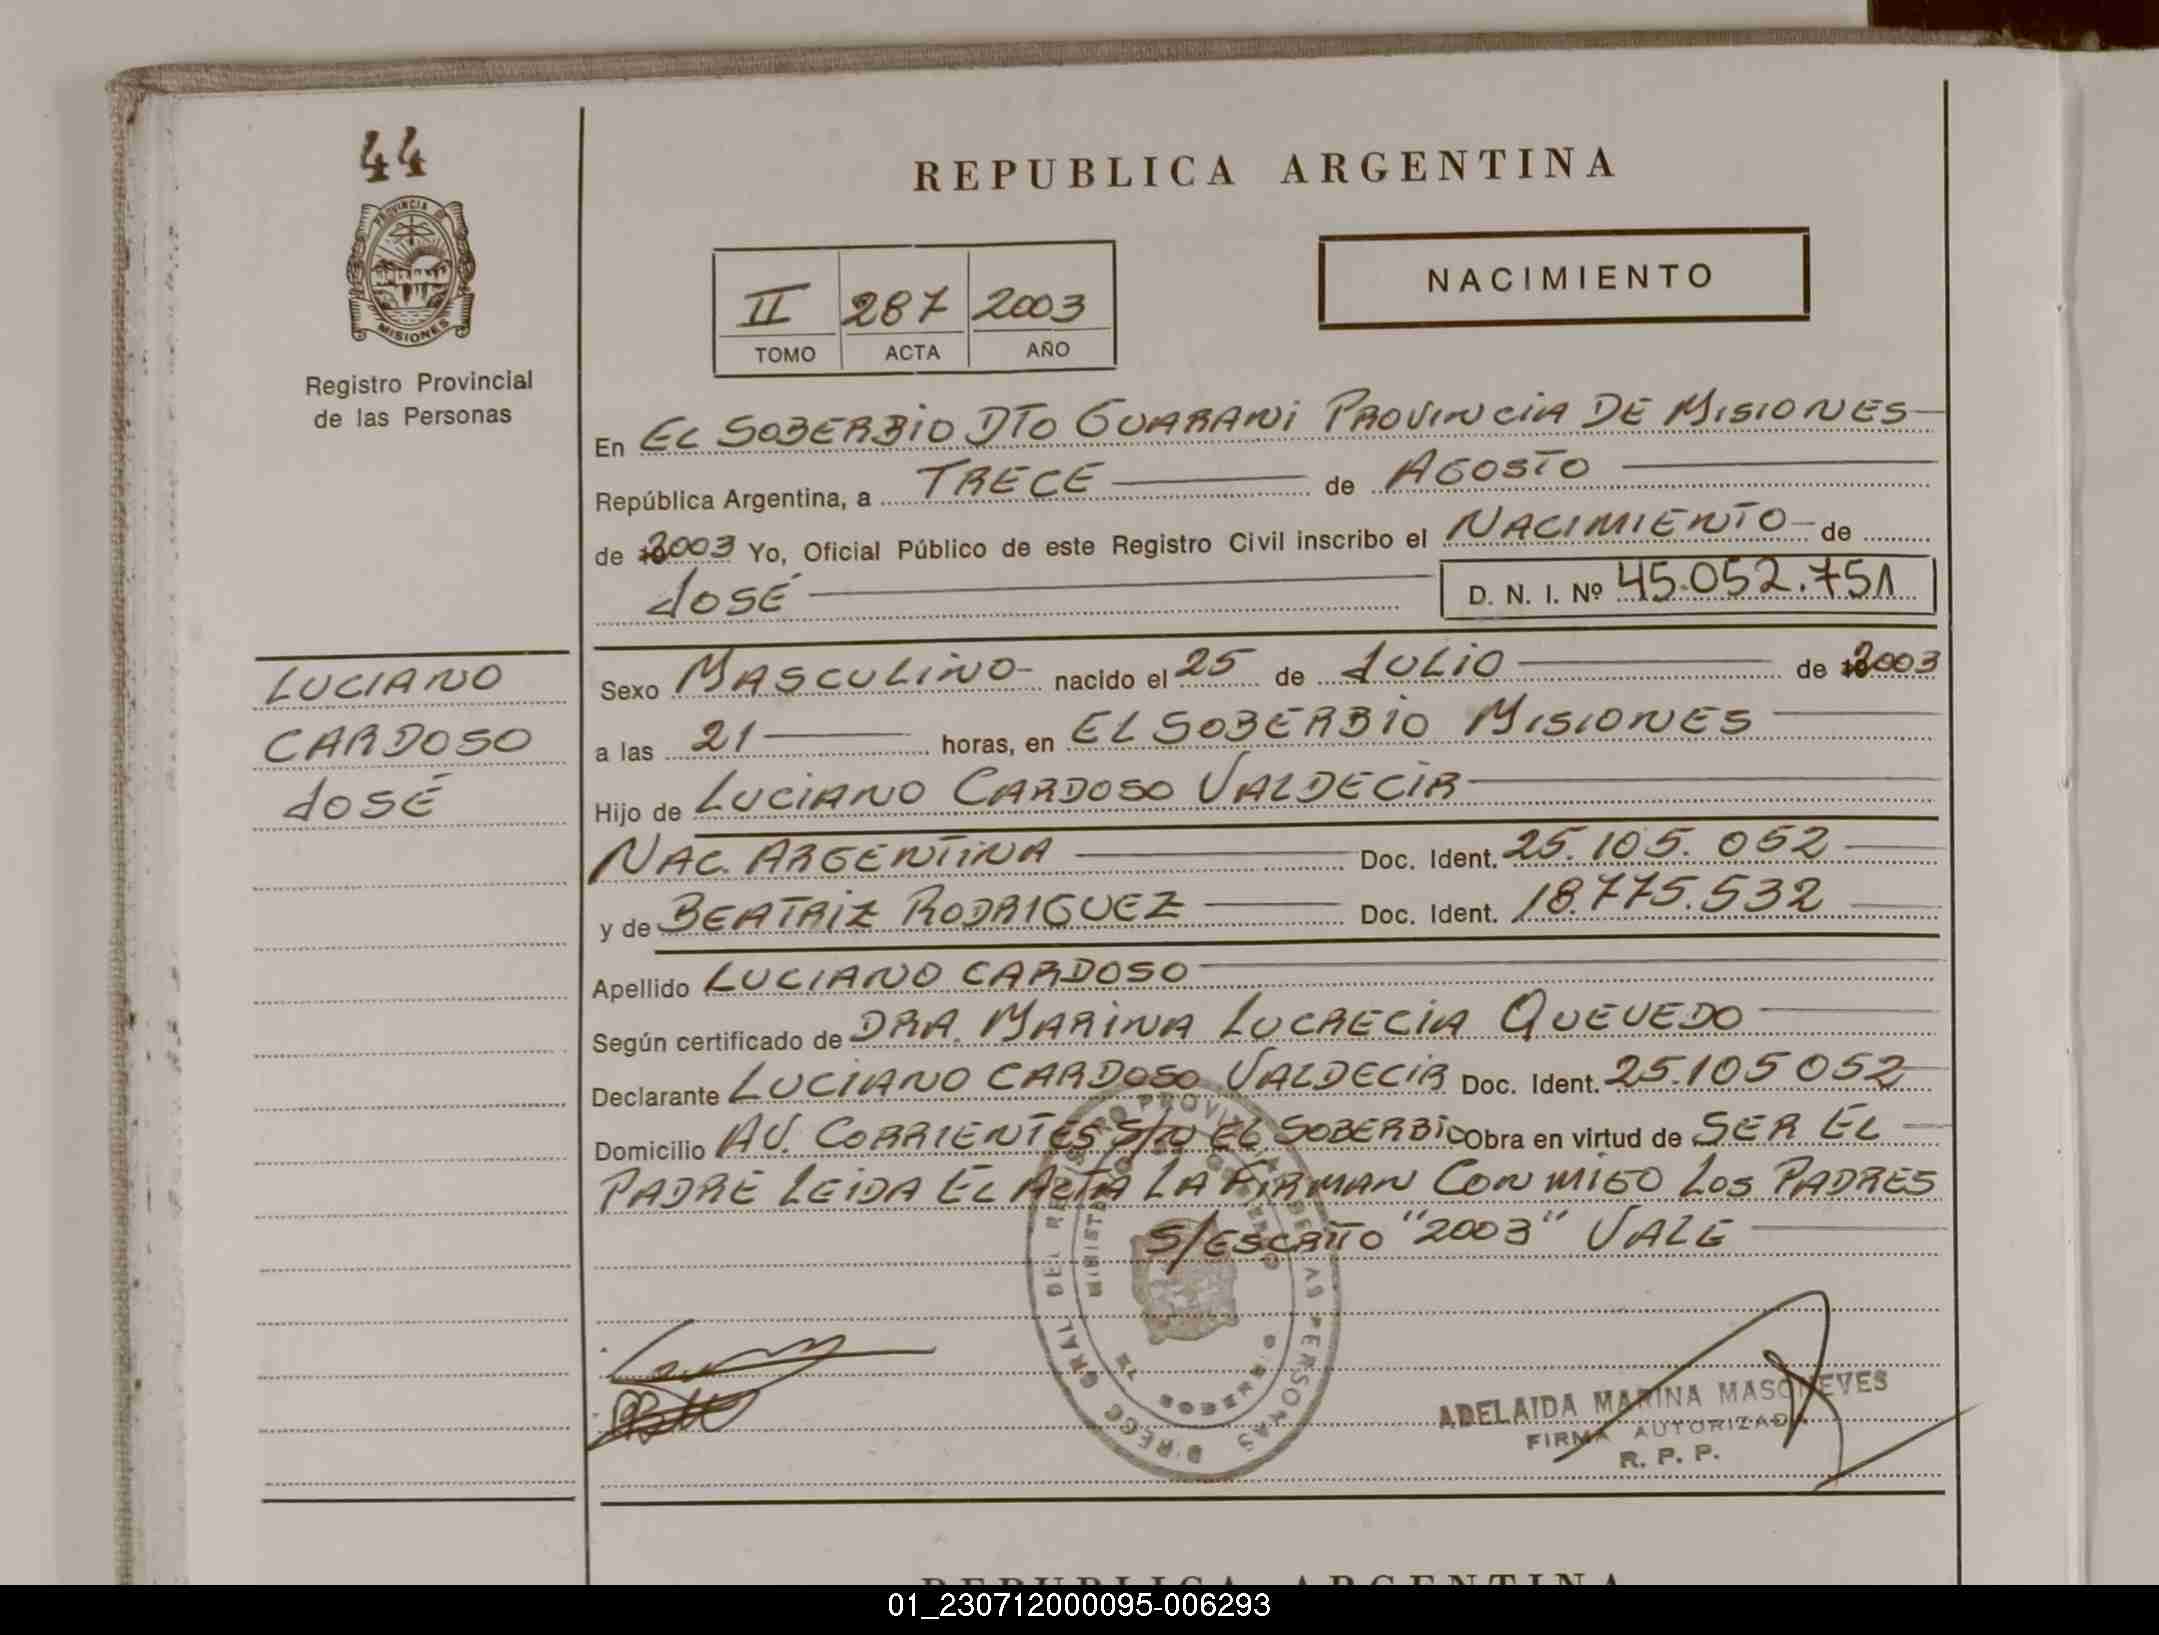 44
PROVINCIA DE
MISIONES
Registro Provincial
de las Personas
LUCIANO
CARDOSO
JOSÉ
REPUBLICA ARGENTINA
II 287 2003
TOMO ACTA AÑO
NACIMIENTO
En EL SOBERBIO DTO GUARANI PROVINCIA DE MISIONES
República Argentina, a TRECE de AGOSTO
de 2003 Yo, Oficial Público de este Registro Civil inscribo el NACIMIENTO de
JOSÉ D. N. I. Nº 45.052.751
Sexo MASCULINO nacido el 25 de JULIO de 2003
a las 21 horas, en EL SOBERBIO MISIONES
Hijo de LUCIANO CARDOSO VALDECIR
NAC. ARGENTINA Doc. Ident. 25.105.052
y de BEATRIZ RODRIGUEZ Doc. Ident. 18.775.532
Apellido LUCIANO CARDOSO
Según certificado de DRA. MARINA LUCRECIA QUEVEDO
Declarante LUCIANO CARDOSO VALDECIR Doc. Ident. 25.105052
Domicilio AV. CORRIENTES S/N EL SOBERBIO Obra en virtud de SER EL
PADRE LEIDA EL ACTA LA FIRMAN CONMIGO LOS PADRES
S/ESCRITO "2003" VALE
DIRECC GRAL DEL REGISTRO PROVINCIAL DE LAS PERSONAS
MINISTERIO DE GOBIERNO
MISIONES
ADELAIDA MARINA
FIRMA AUTORIZADA
R. P. P.
REPUBLICA ARGENTINA
01_230712000095-006293